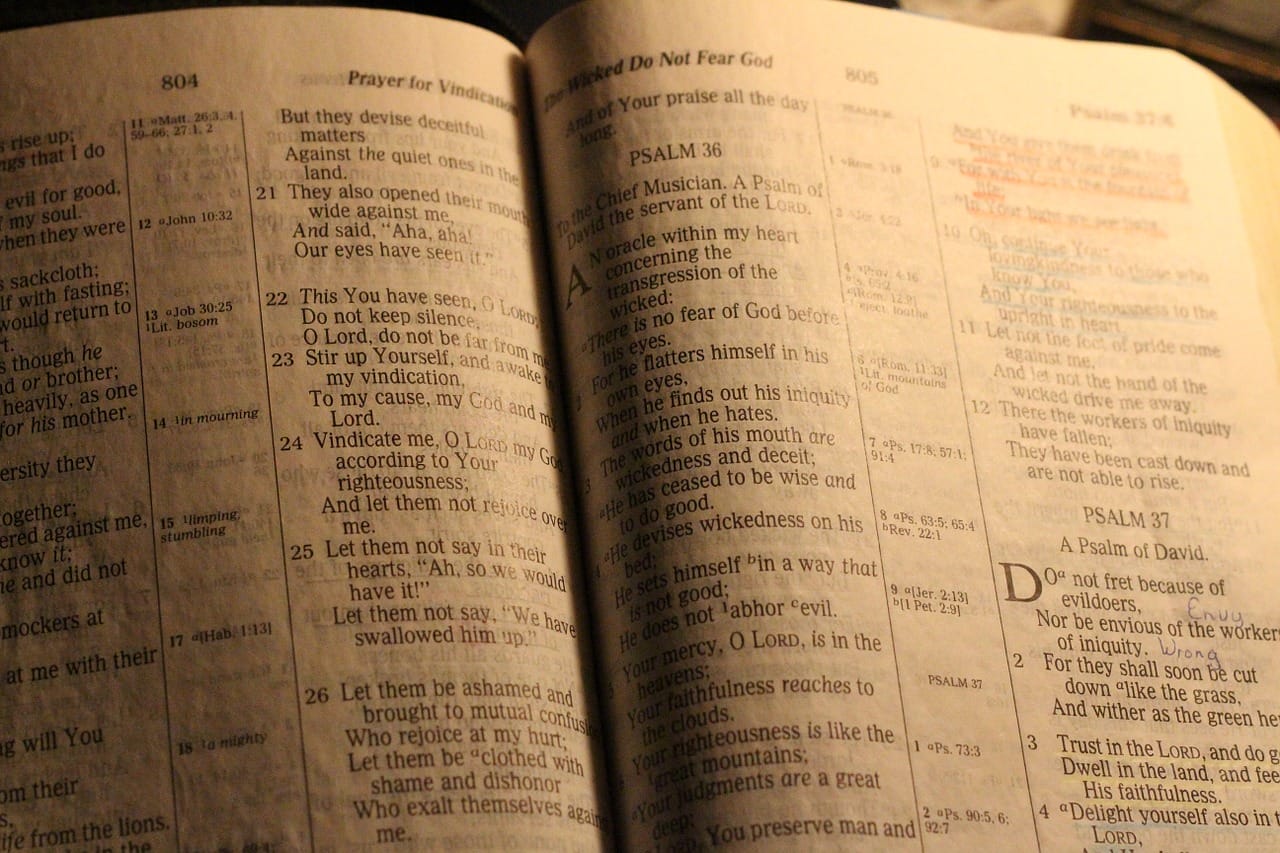 804
Prayer for Vindication
s rise up;
ngs that I do
evil for good,
f my soul.
when they were
s sackcloth;
lf with fasting;
would return to
s though he
nd or brother;
heavily, as one
for his mother.
ersity they
ogether;
ered against me,
know it;
e and did not
mockers at
at me with their
ng will You
om their
s,
ife from the lions.
in the
11 aMatt. 26:3, 4,
59–66; 27:1, 2
12 aJohn 10:32
13 aJob 30:25
1Lit. bosom
14 1in mourning
15 1limping,
stumbling
17 a[Hab. 1:13]
18 1a mighty
But they devise deceitful
matters
Against the quiet ones in the
land.
21 They also opened their mouth
wide against me,
And said, “Aha, aha!
Our eyes have seen it.”
22 This You have seen, O LORD;
Do not keep silence.
O Lord, do not be far from me
23 Stir up Yourself, and awake to
my vindication,
To my cause, my God and my
Lord.
24 Vindicate me, O LORD my God
according to Your
righteousness;
And let them not rejoice over
me.
25 Let them not say in their
hearts, “Ah, so we would
have it!”
Let them not say, “We have
swallowed him up.”
26 Let them be ashamed and
brought to mutual confusion
Who rejoice at my hurt;
Let them be aclothed with
shame and dishonor
Who exalt themselves against
me.
The Wicked Do Not Fear God
805
Psalm 37:4
And of Your praise all the day
long.
PSALM 36
To the Chief Musician. A Psalm of
David the servant of the LORD.
AN oracle within my heart
concerning the
transgression of the
wicked:
aThere is no fear of God before
his eyes.
2 For he flatters himself in his
own eyes,
When he finds out his iniquity
and when he hates.
3 The words of his mouth are
wickedness and deceit;
aHe has ceased to be wise and
to do good.
4 aHe devises wickedness on his
bed;
He sets himself bin a way that
is not good;
He does not 1abhor cevil.
5 Your mercy, O LORD, is in the
heavens;
Your faithfulness reaches to
the clouds.
Your righteousness is like the
1great mountains;
aYour judgments are a great
deep;
O LORD, You preserve man and
PSALM 36
1 aRom. 3:18
3 aJer. 4:22
4 aProv. 4:16
bIs. 65:2
c[Rom. 12:9]
1reject, loathe
6 a[Rom. 11:33]
1Lit. mountains
of God
7 aPs. 17:8; 57:1;
91:4
8 aPs. 63:5; 65:4
bRev. 22:1
9 a[Jer. 2:13]
b[1 Pet. 2:9]
PSALM 37
1 aPs. 73:3
2 aPs. 90:5, 6;
92:7
9 aFor with You is the fountain of
life;
bIn Your light we see light.
10 Oh, continue Your
lovingkindness to those who
know You,
And Your righteousness to the
upright in heart.
11 Let not the foot of pride come
against me,
And let not the hand of the
wicked drive me away.
12 There the workers of iniquity
have fallen;
They have been cast down and
are not able to rise.
PSALM 37
A Psalm of David.
DOa not fret because of
evildoers,
Envy
Nor be envious of the workers
of iniquity. Wrong
2 For they shall soon be cut
down alike the grass,
And wither as the green he
3 Trust in the LORD, and do g
Dwell in the land, and fee
His faithfulness.
4 aDelight yourself also in t
LORD,